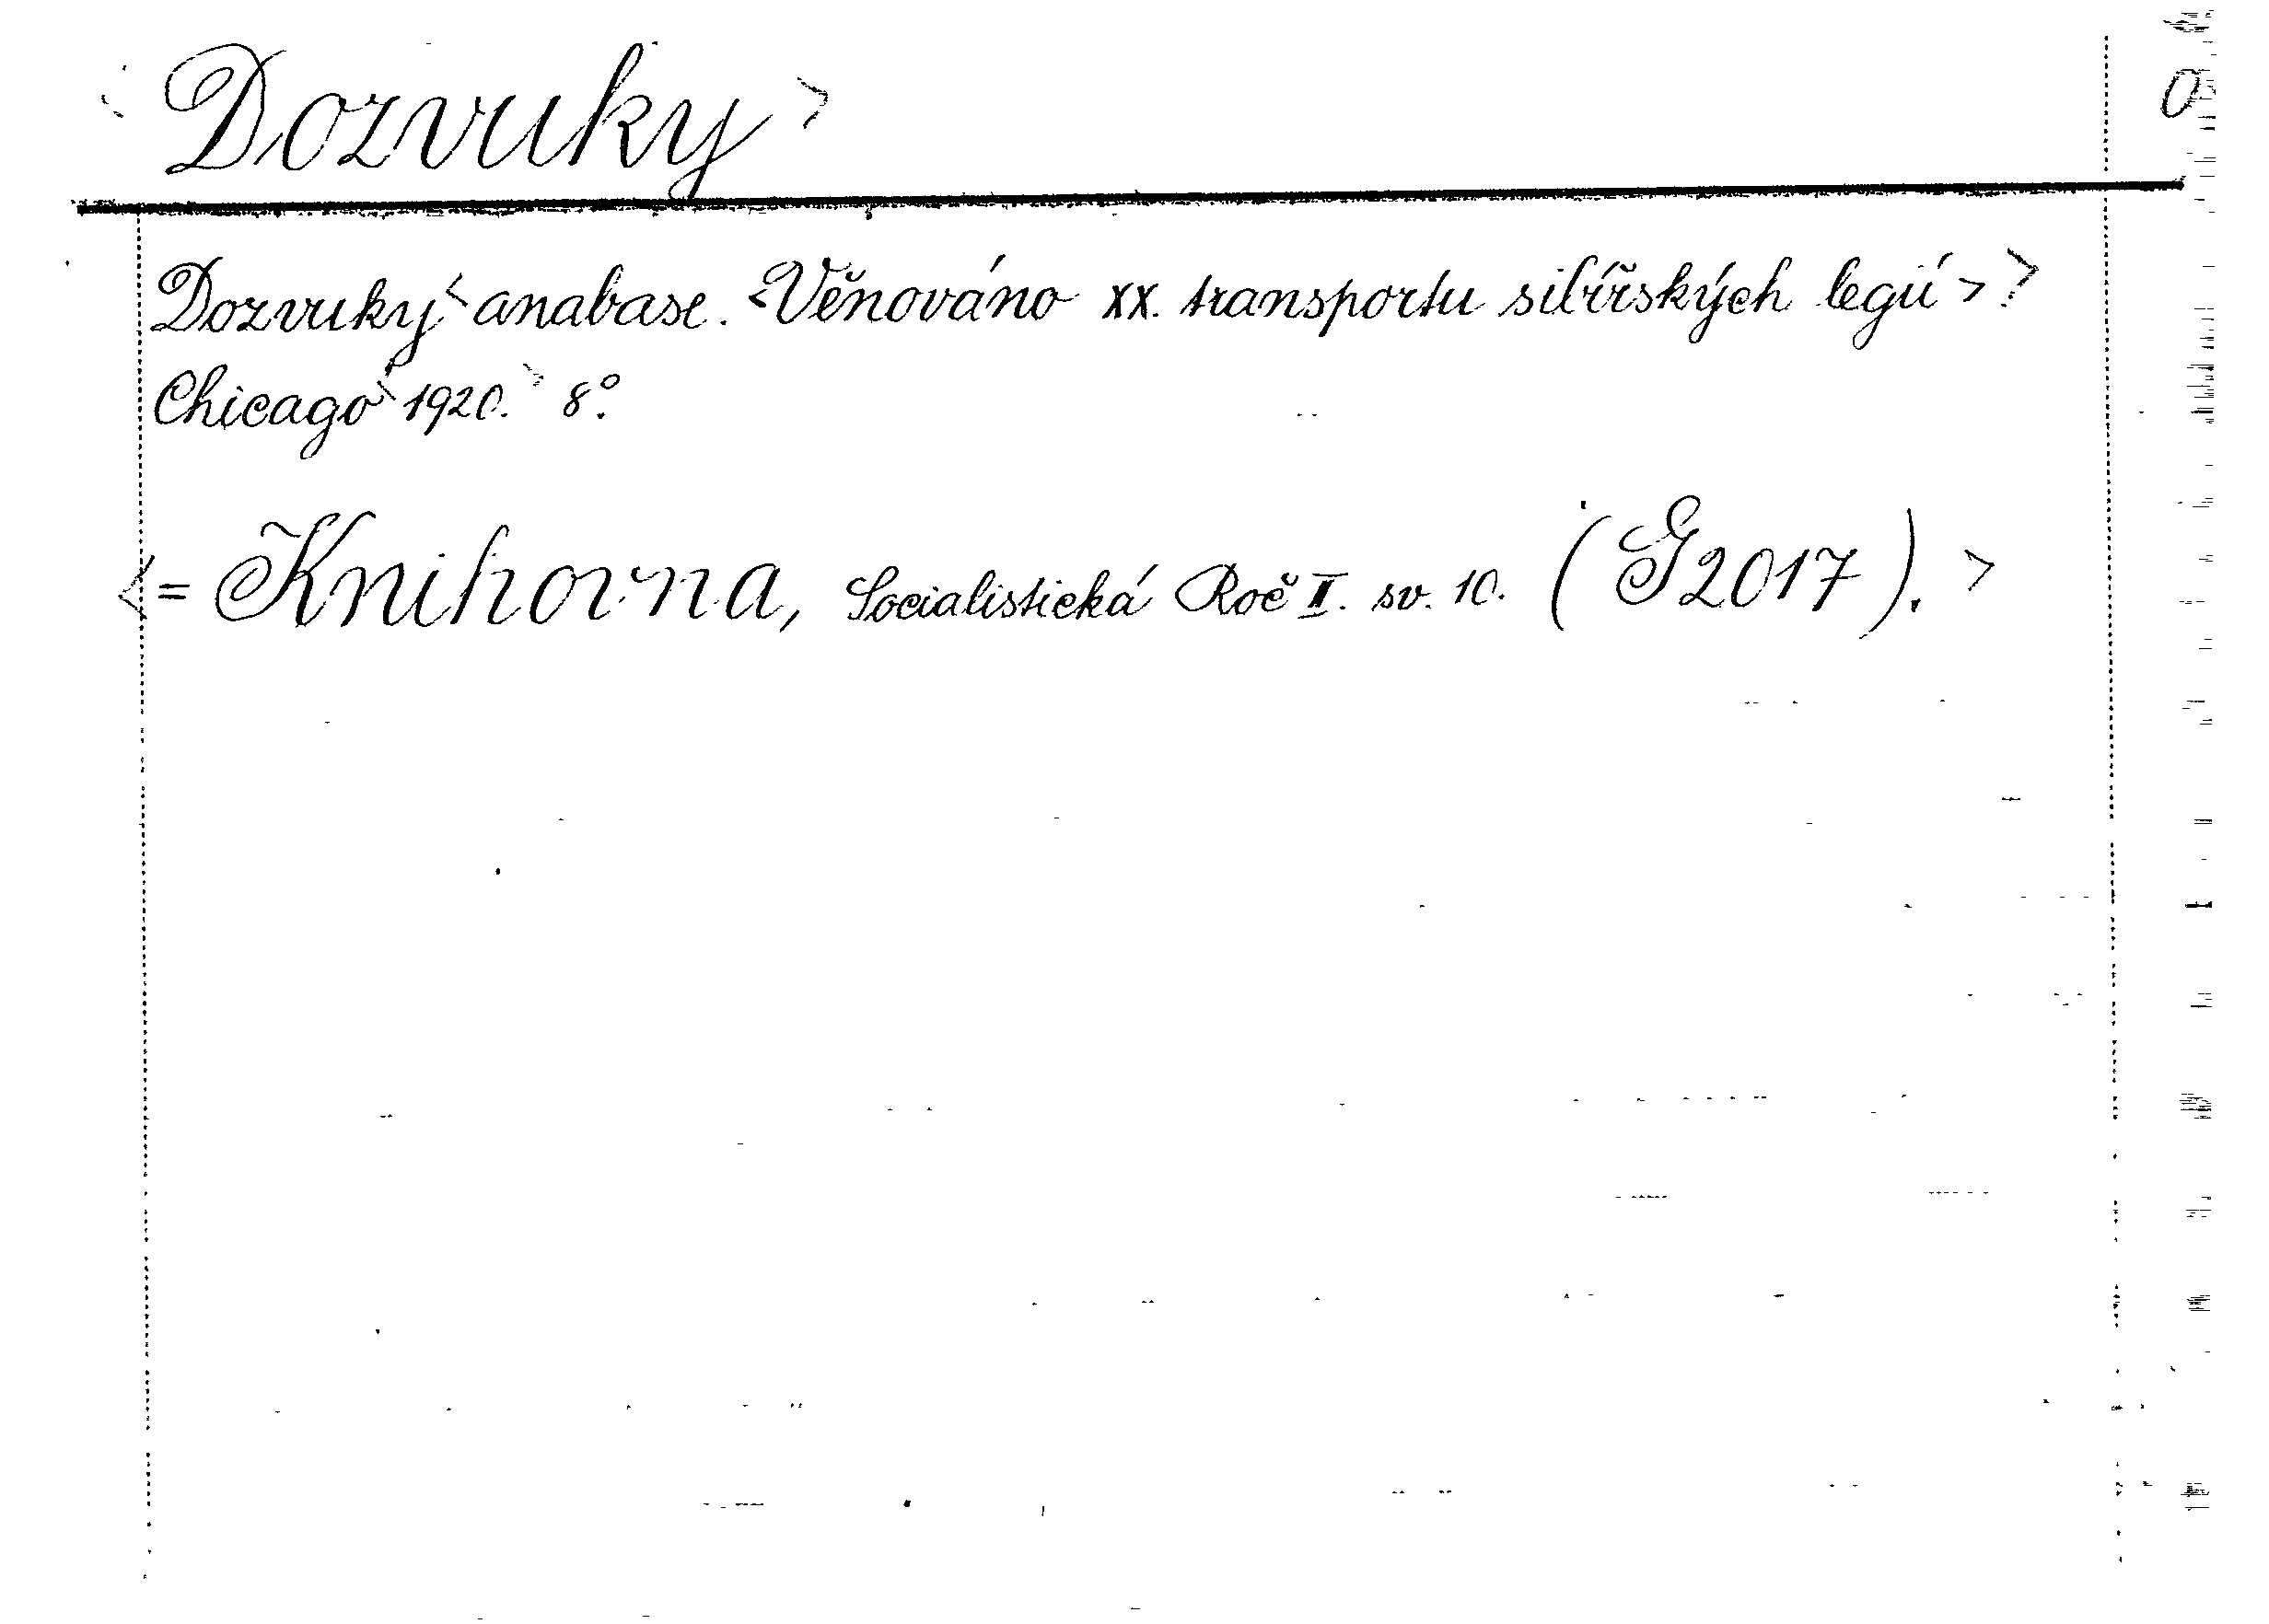 < Dozvuky > 0
Dozvuky < anabase. <Věnováno XX. transportu sibířských legií > >
Chicago < 1920. > 8°.
< = Knihovna, Socialistická Roč II. sv. 10. (G2017). >